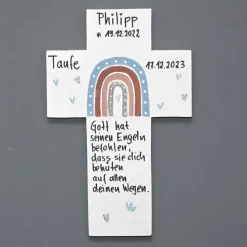 Philipp
* 19.12.2022
Taufe
17.12.2023
Gott hat
seinen Engeln
befohlen,
dass sie dich
behüten
auf allen
deinen Wegen.